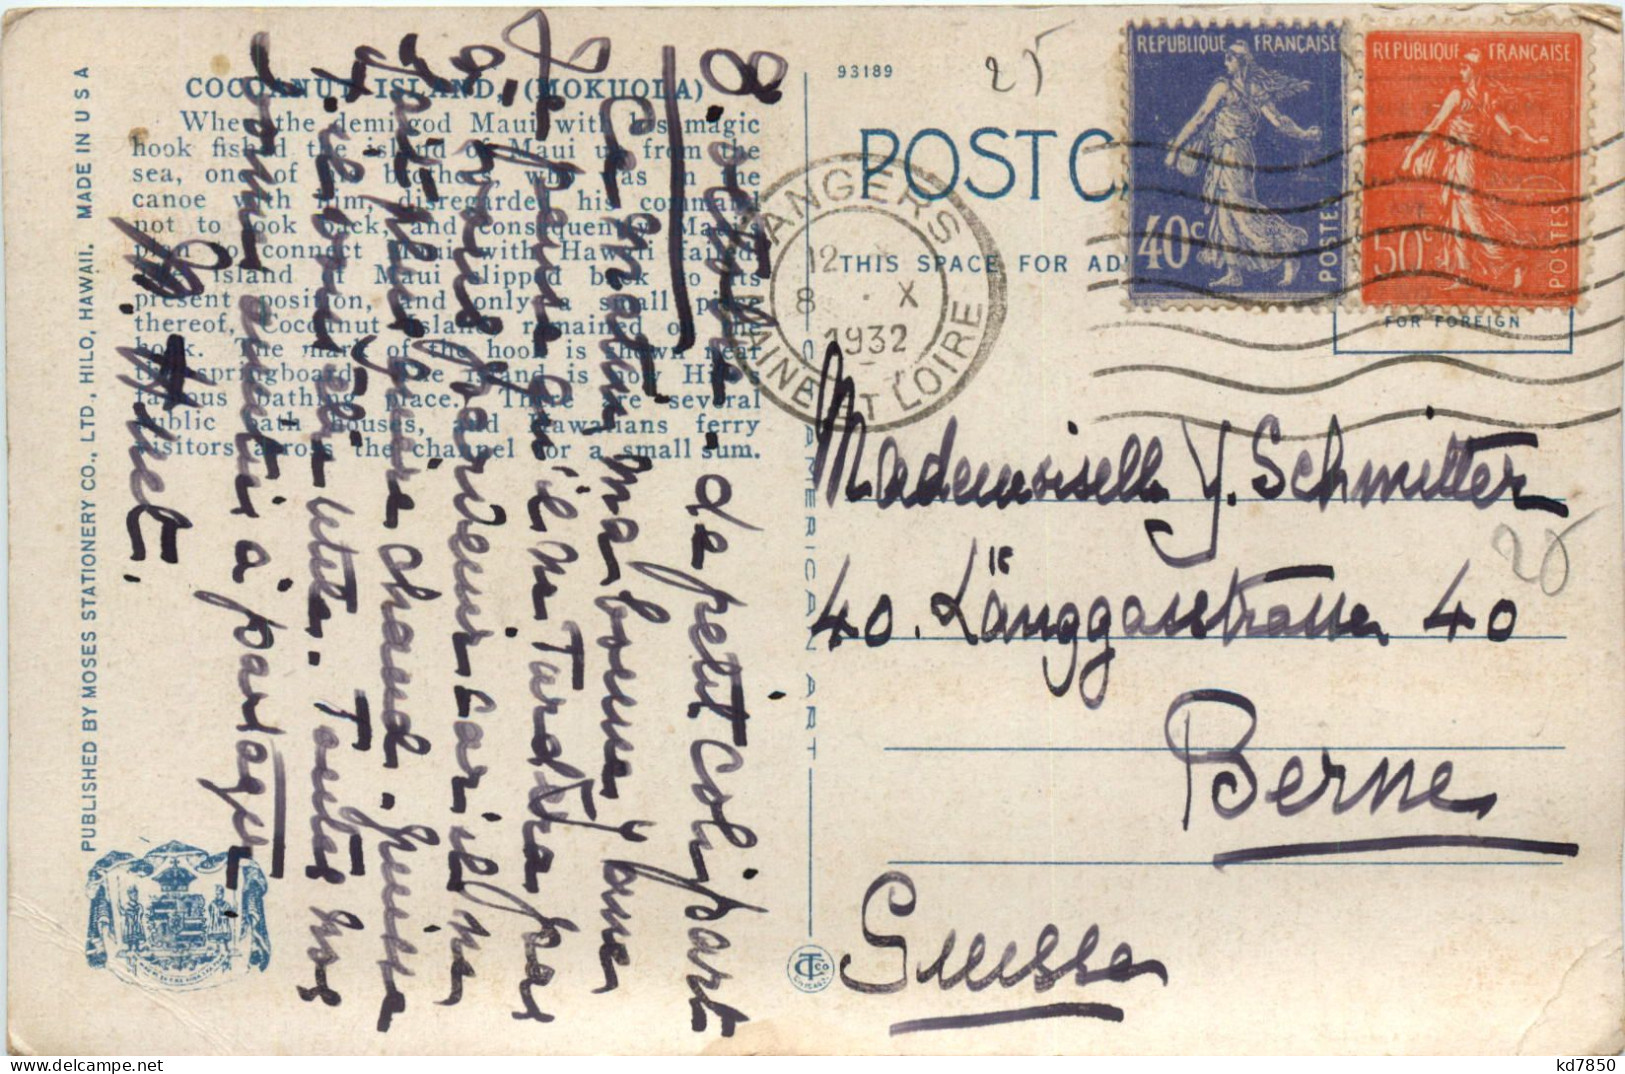 93189
25
COCOANUT ISLAND, (MOKUOLA)
When the demi-god Maui with his magic
hook fished the island of Maui up from the
sea, one of his brothers, who was in the
canoe with him, disregarded his command
not to look back, and consequently Maui's
plan to connect Maui with Hawaii failed.
The island of Maui slipped back to its
present position, and only a small piece
thereof, Cocoanut Island, remained on the
hook. The mark of the hook is shown near
the springboard. The island is now Hilo's
famous bathing place. There are several
public bath houses, and Hawaiians ferry
visitors across the channel for a small sum.
PUBLISHED BY MOSES STATIONERY CO., LTD, HILO, HAWAII. MADE IN U S A
8. octobre. Le petit colis part
Ce matin, ma bonne
Je pense qu'il ne tardera pas
à vous parvenir car il ne
fait plus guère chaud.
sera utile. Toutes nos
à partager.
C AMERICAN ART
POST C
THIS SPACE FOR AD
FOR FOREIGN
REPUBLIQUE FRANÇAISE
40c
POSTES
REPUBLIQUE FRANÇAISE
50c
POSTES
ANGERS
12
8 X
1932
MAINE ET LOIRE
Mademoiselle Y. Schmitter
40. Länggasstrasse 40
25
Berne
Suisse
kd7850